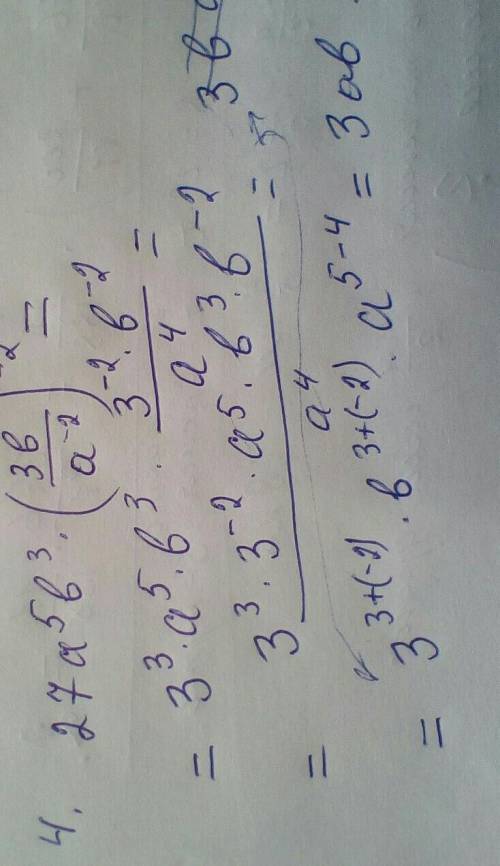 4. 27a⁵b³ · (3b/a⁻²)⁻² =
= 3³ · a⁵ · b³ · 3⁻² · b⁻²/a⁴ =
= 3³ · 3⁻² · a⁵ · b³ · b⁻²/a⁴ =
= 3³⁺⁽⁻²⁾ · b³⁺⁽⁻²⁾ · a⁵⁻⁴ = 3ab